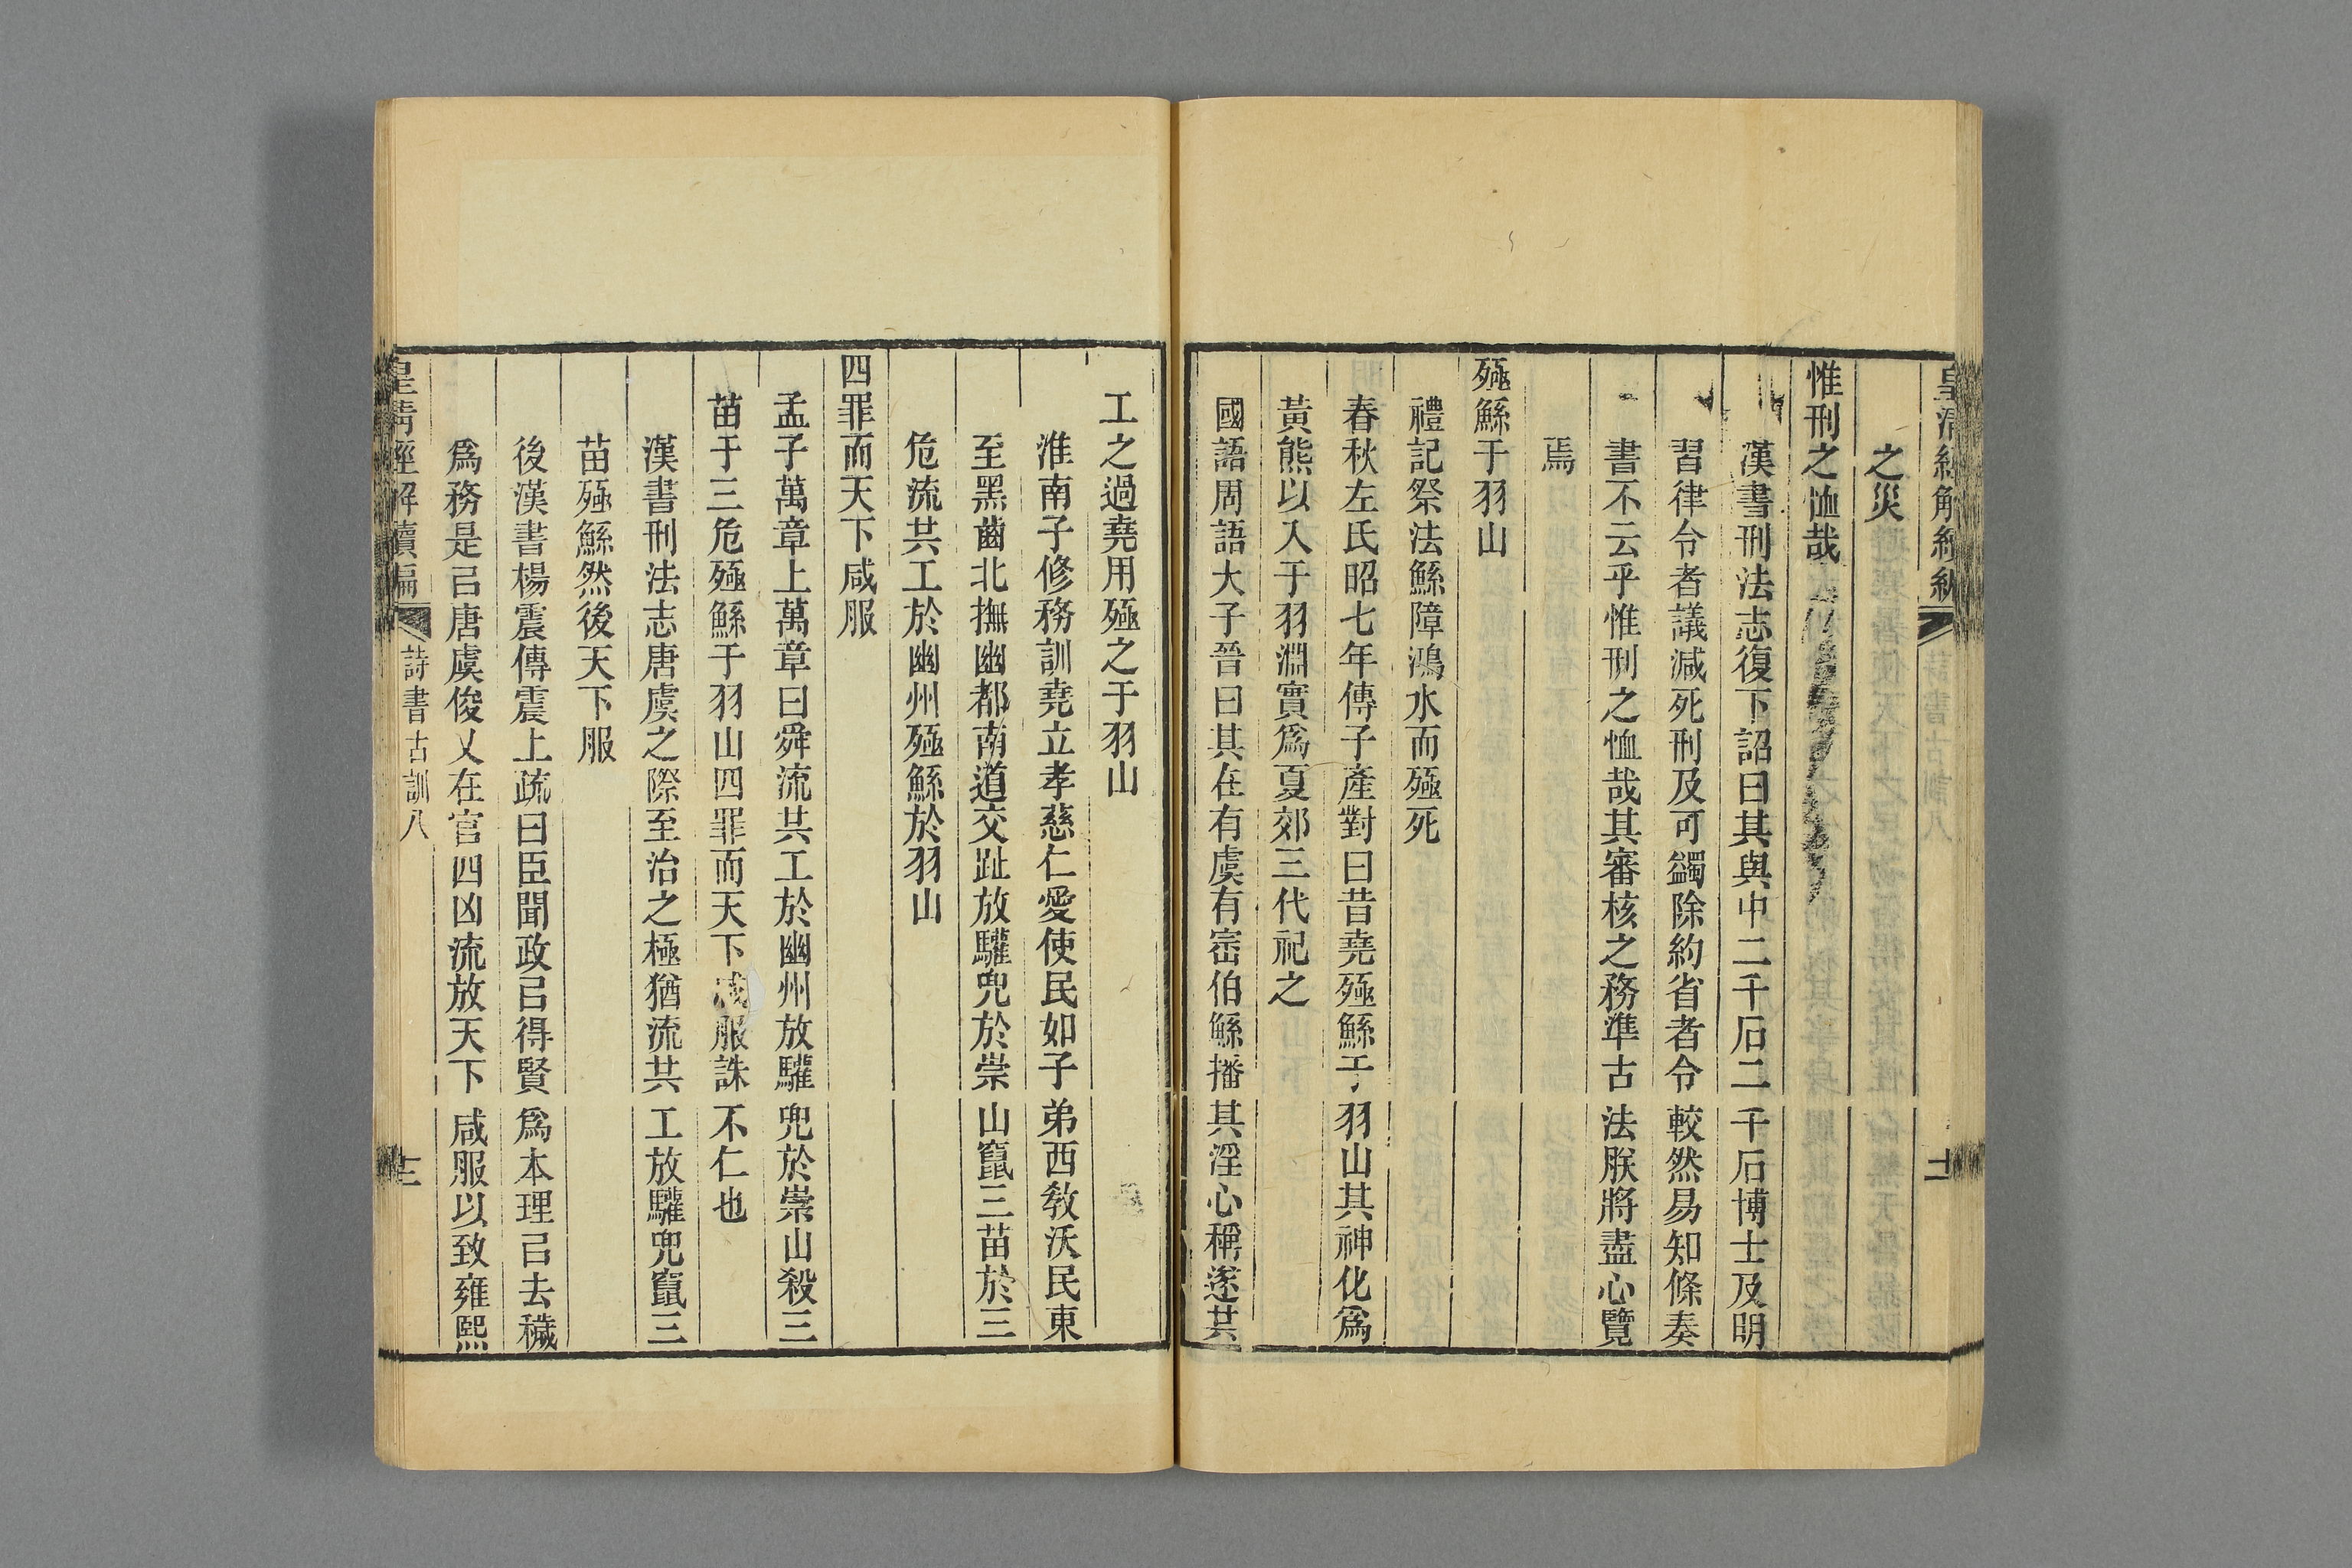 皇清經解續編 詩書古訓八 十一
之災
惟刑之恤哉
漢書刑法志復下詔曰其與中二千石二千石博士及明
習律令者議減死刑及可蠲除約省者令較然易知條奏
書不云乎惟刑之恤哉其審核之務準古法朕將盡心覽
焉
殛鯀于羽山
禮記祭法鯀障鴻水而殛死
春秋左氏昭七年傳子產對曰昔堯殛鯀于羽山其神化爲
黃熊以入于羽淵實爲夏郊三代祀之
國語周語大子晉曰其在有虞有崈伯鯀播其淫心稱遂共
工之過堯用殛之于羽山
淮南子修務訓堯立孝慈仁愛使民如子弟西敎沃民東
至黑齒北撫幽都南道交趾放驩兜於崇山竄三苗於三
危流共工於幽州殛鯀於羽山
四罪而天下咸服
孟子萬章上萬章曰舜流共工於幽州放驩兜於崇山殺三
苗于三危殛鯀于羽山四罪而天下咸服誅不仁也
漢書刑法志唐虞之際至治之極猶流共工放驩兜竄三
苗殛鯀然後天下服
後漢書楊震傳震上疏曰臣聞政㠯得賢爲本理㠯去穢
爲務是㠯唐虞俊乂在官四凶流放天下咸服以致雍熙
皇清經解續編 詩書古訓八